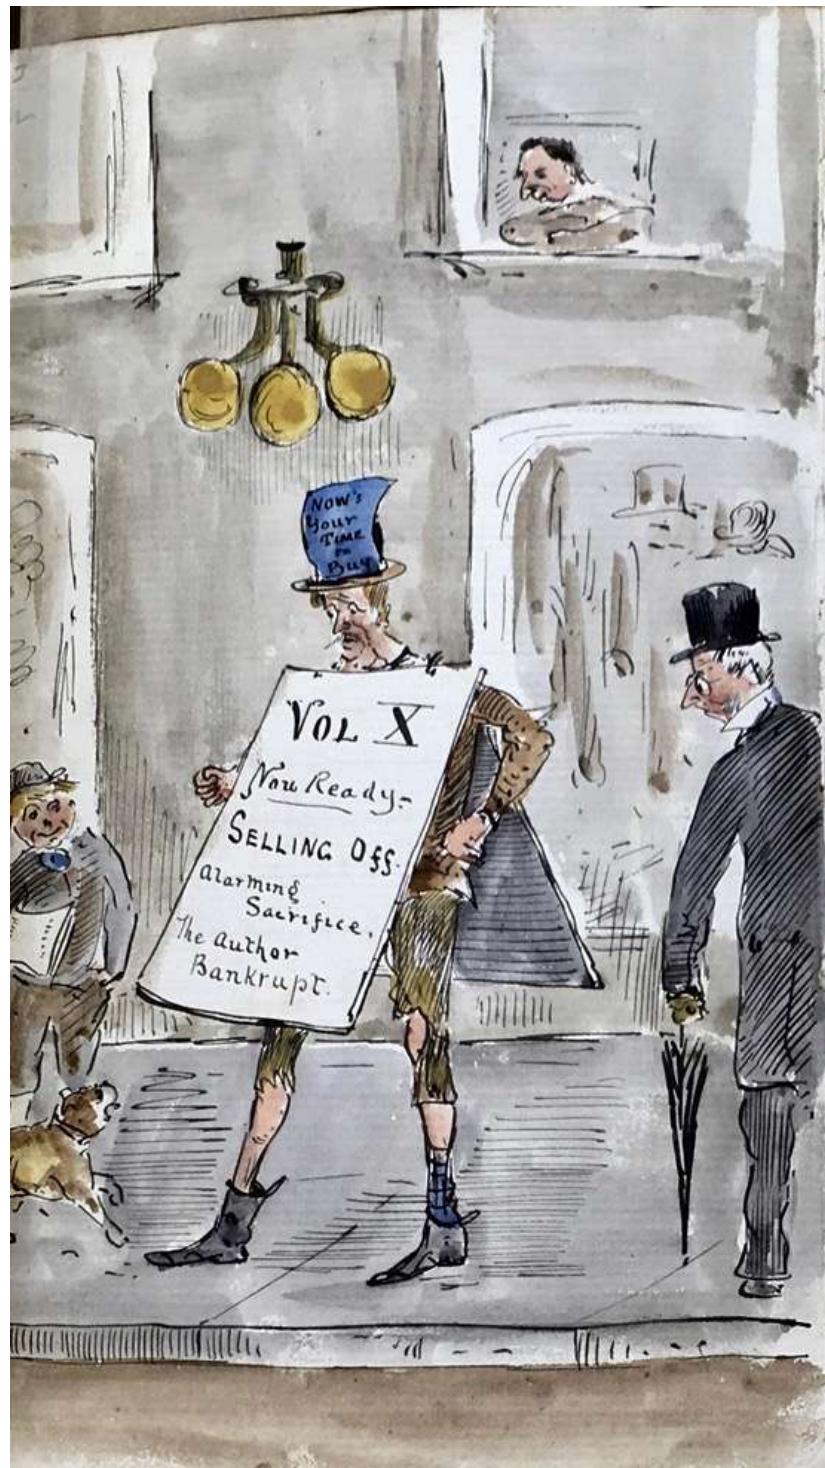 NOW'S
Your
TIME
to
Buy
VOL X
Now Ready-
SELLING Off.
Alarming
Sacrifice.
The Author
Bankrupt.